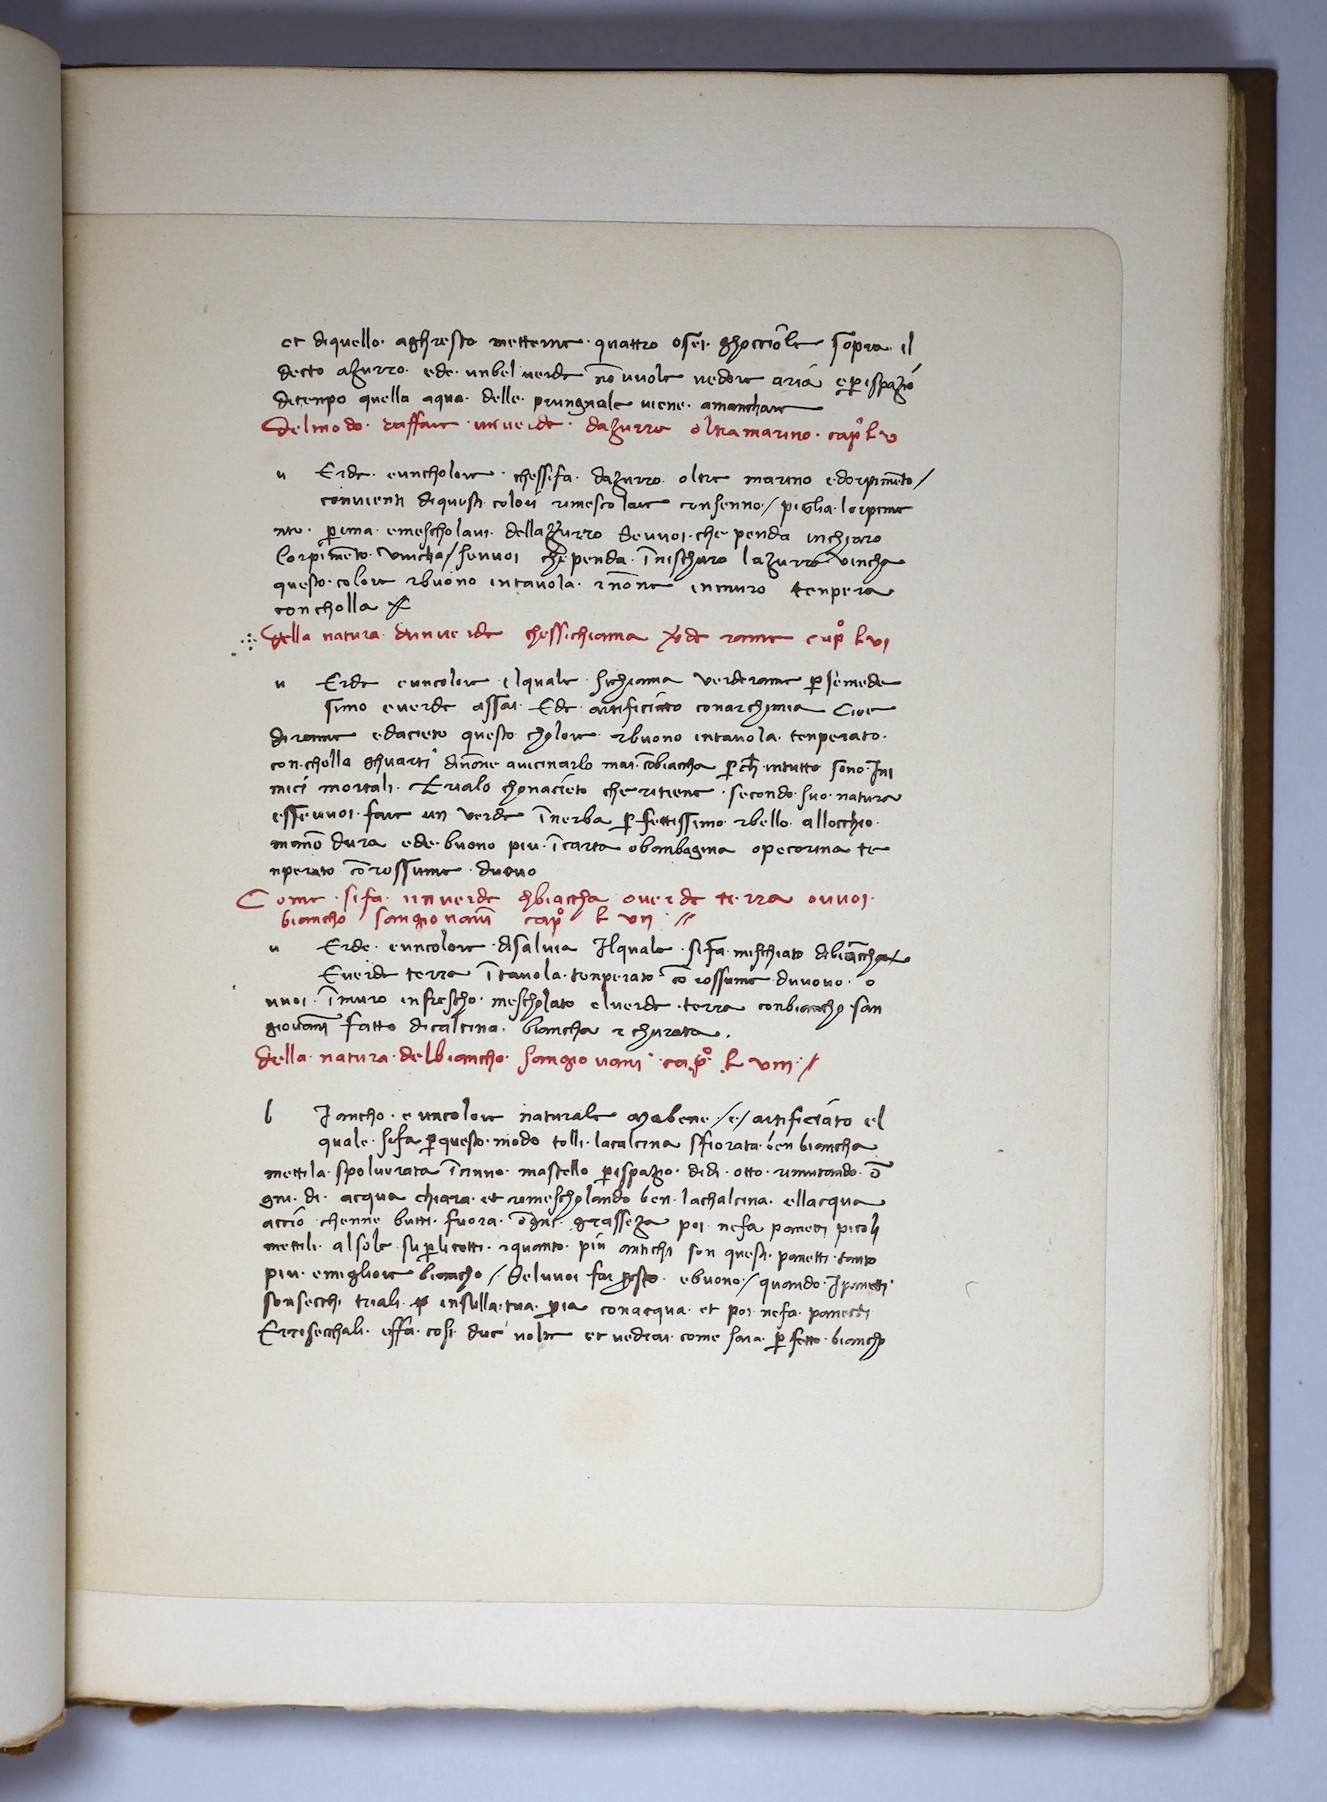 et diquello · aghresto metterne · quattro osei · ghocciole sopra · il
decto azurro · ede · unbel verde nō vuole vedere aria e p̱ ispazio
ditenpo quella aqua · delle · prungniole viene · amanchare
Delmodo · daffare · unverde · dazurro oltramarino · capº lv
u Erde · euncholore · chessifa · dazurro · oltre marino edorpimēto /
convienti diquesti colori rimescolare consenno / piglia lorpime
nto · p̱ima · emescholavi · dellazurro Sevuoi · che penda inchiaro
lorpimēto · vincha / sevuoi che penda · ī nischuro lazurro vincha
questo · colore ebuono intavola · enōne inmuro tenpera
concholla
Della natura dunverde chessichiama v̱de rame capº lvi
u Erde euncolore ilquale sichiama verderame p̱ semede
simo everde assai · Ede artificiato conarchimia Cioe
dirame edacieto questo cholore · ebuono intavola · tenperato ·
con · cholla ghuarti dinōne avicinarlo mai cōbiaccha p̱ch̄ · intutto sono · Ini
mici mortali · Trialo chonacieto cheritiene · secondo · suo · natura
essevuoi · fare un verde ī nerba p̱fettissimo ebello · allocchio ·
manō dura ede · buono piu · ī carta obambagina opecorina te
nperato cō rossume · duovo
Come · sifa · unverde chbiaccha overde terra ovvoi ·
biancho sangiovanī capº l vii · //
u Erde · euncolore · disalvia Ilquale · sifa · mischiato dibiaccha
Everde terra ī tavola · tenperato · cō rossume · duvovo · o
vuoi · ī muro infrescho · mescholato elverde · terra conbiancho · san
giovanī fatto dicalcina · biancha e churata ·
della · natura · delbiancho · sangiovani · capº · l viii · /
b Iancho · euncolore naturale mabene · / e / artificiato el
quale · sifa p̱ questo · modo tolli · lacalcina sfiorata · ben biancha
mettila · spolverata ī cinno · mastello p̱ispazio · didi · otto · rimutando · ō
gni · di · acqua chiara · et rimescholando ben · lachalcina · ellacqua
accio chenne butti · fuora · ōgni · grasseza poi nefa panetti picoli
mettili · alsole su p̱ litetti · equanto · piu antichi son questi · panetti · tanto
piu · emigliore biancho / Selvuoi far p̱sto · ebuono · / quando · I panetti
sonsecchi triali · insulla · tua · p̱ia conacqua · et poi · nefa · panetti
Errisecchali · effa · cosi due volte et vedrai · come sara · p̱fetto · biancho